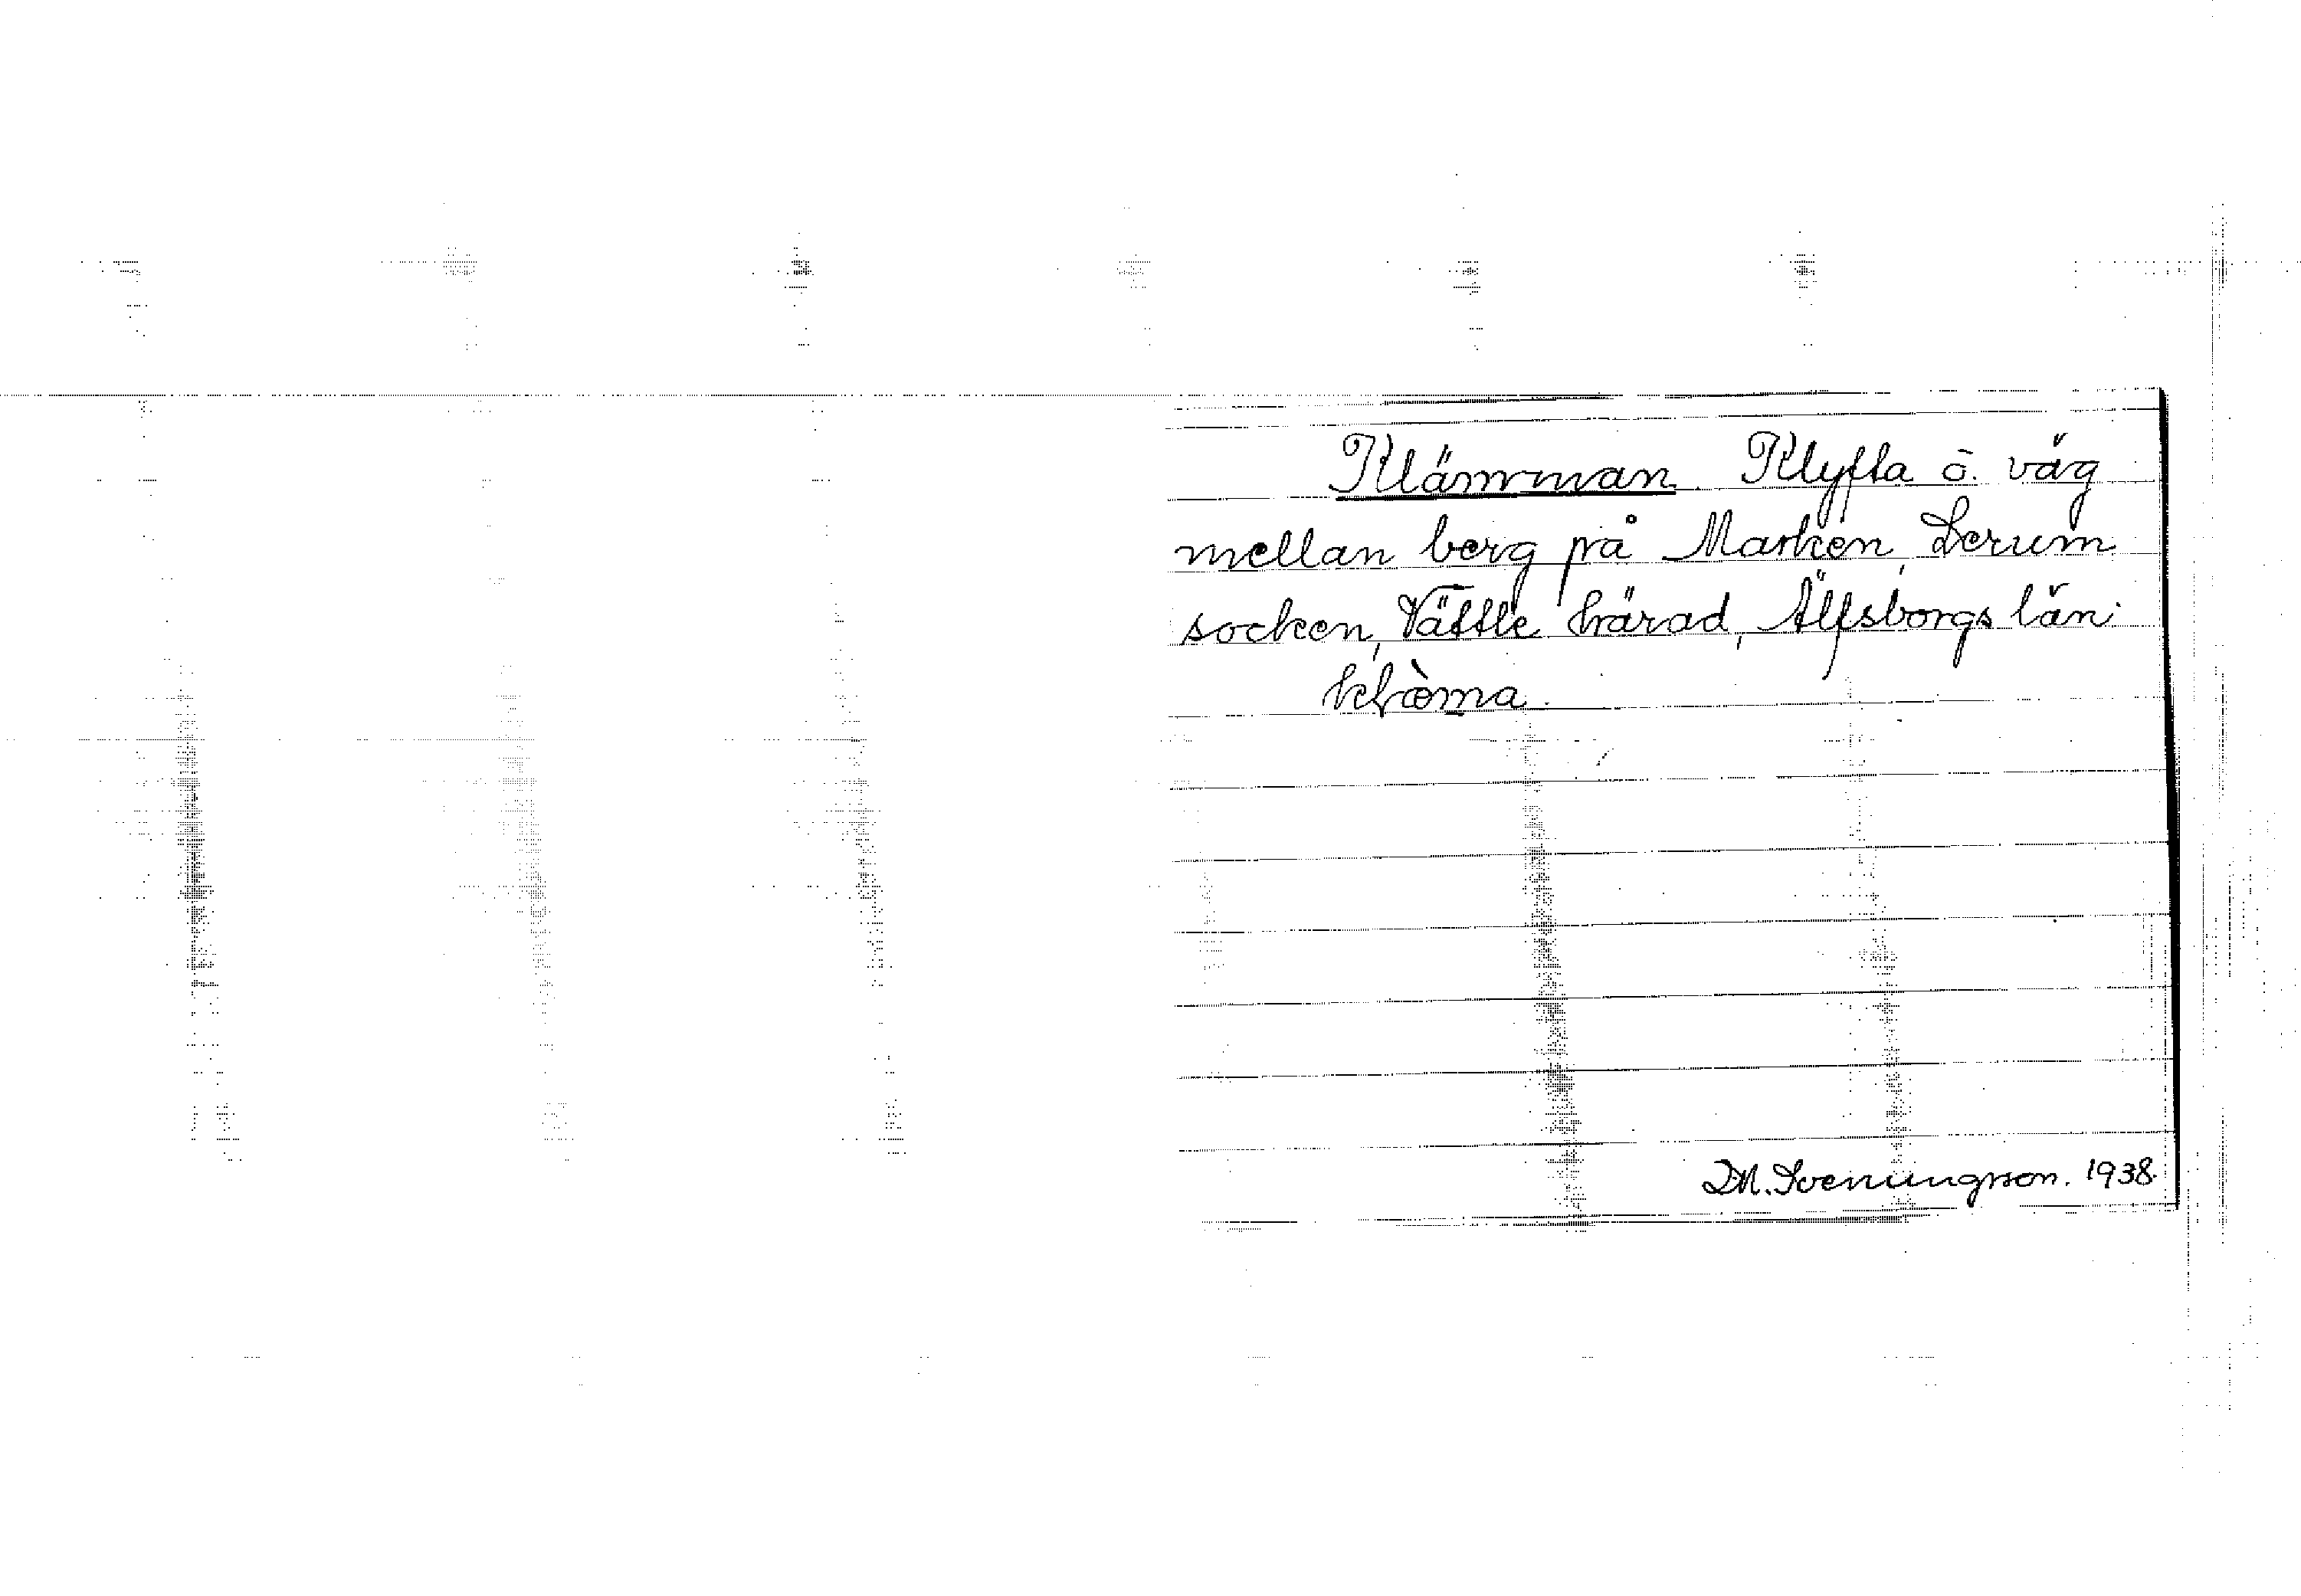 Klämman. Klyfta o. väg
mellan berg på Marken, Lerum
socken, Vättle härad, Älfsborgs län.
D.M. Svenungsson. 1938.